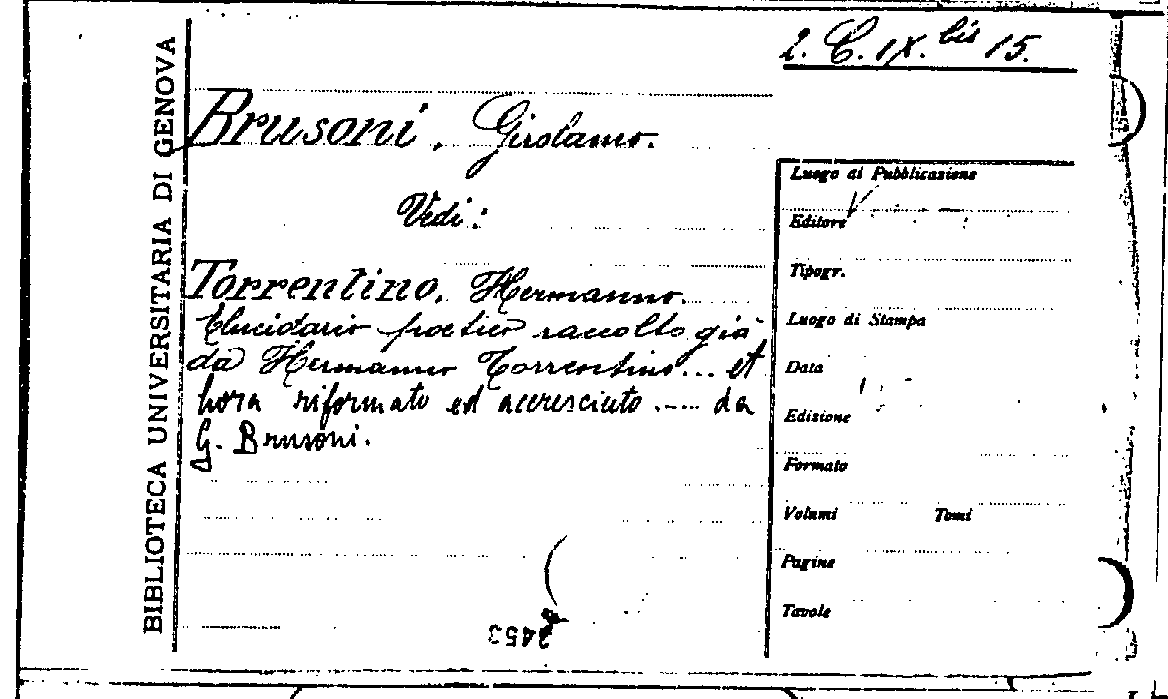 2. C. IX. bis 15.
BIBLIOTECA UNIVERSITARIA DI GENOVA
Brusoni, Girolamo.
Vedi:
Torrentino, Hermanno.
Elucidario poetico raccolto già
da Hermanno Torrentino... et
hora riformato ed accresciuto .... da
G. Brusoni.
Luogo di Pubblicazione
Editore
Tipogr.
Luogo di Stampa
Data
Edizione
Formato
Volumi Tomi
Pagine
Tavole
2453